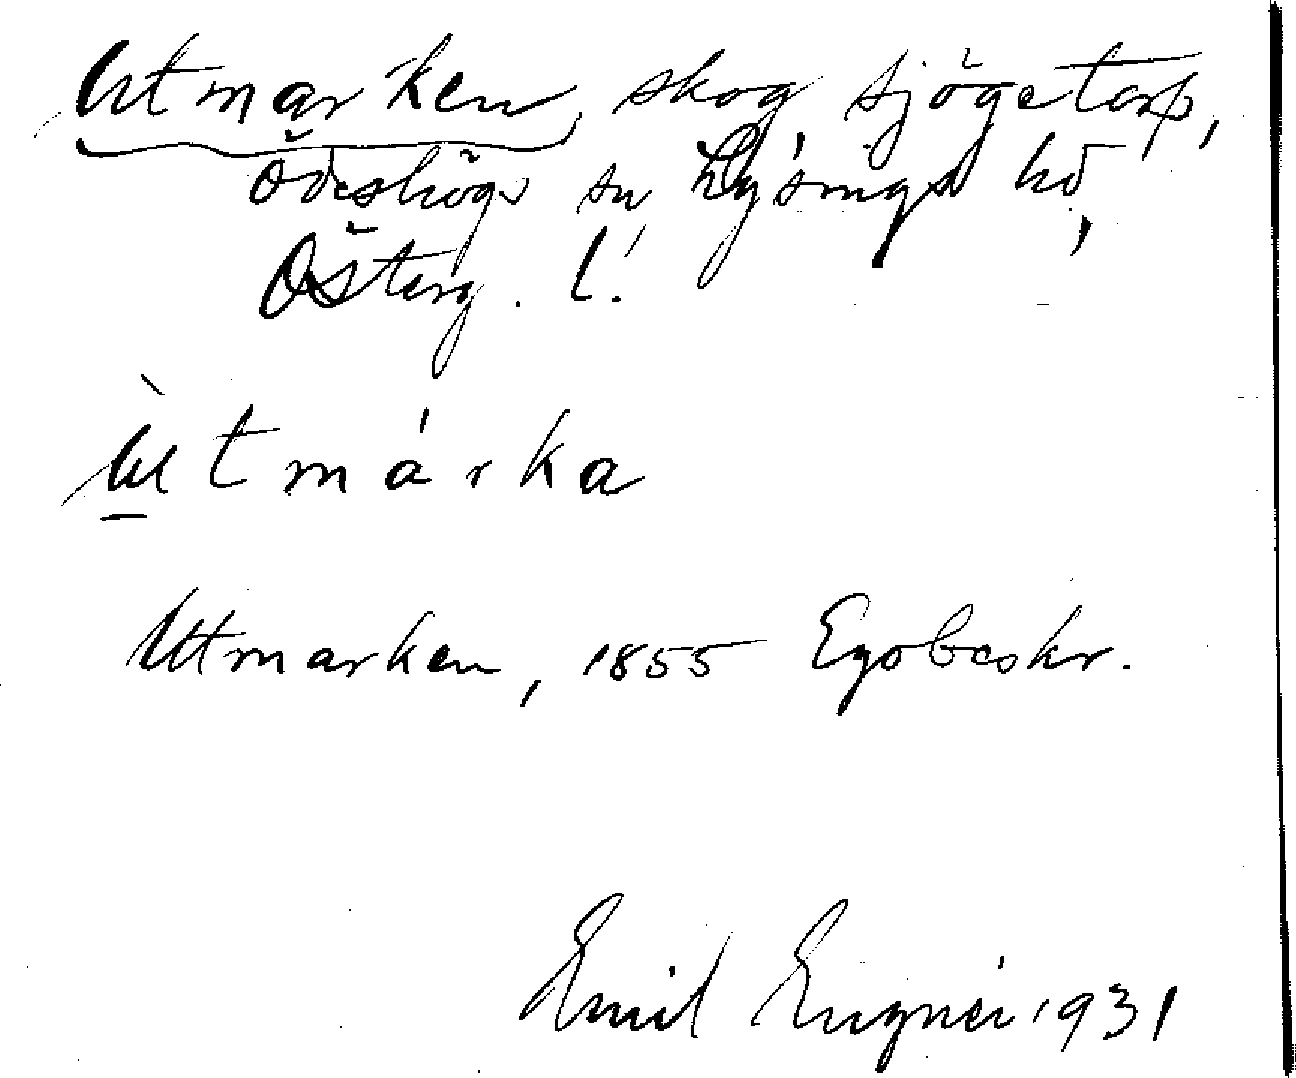 Utmarken, skog Sjögetorp,
Ödeshögs sn, Lysings hd,
Österg. l.
Ùtmárka
Utmarken, 1855 Egobeskr.
Emil Engnér 1931